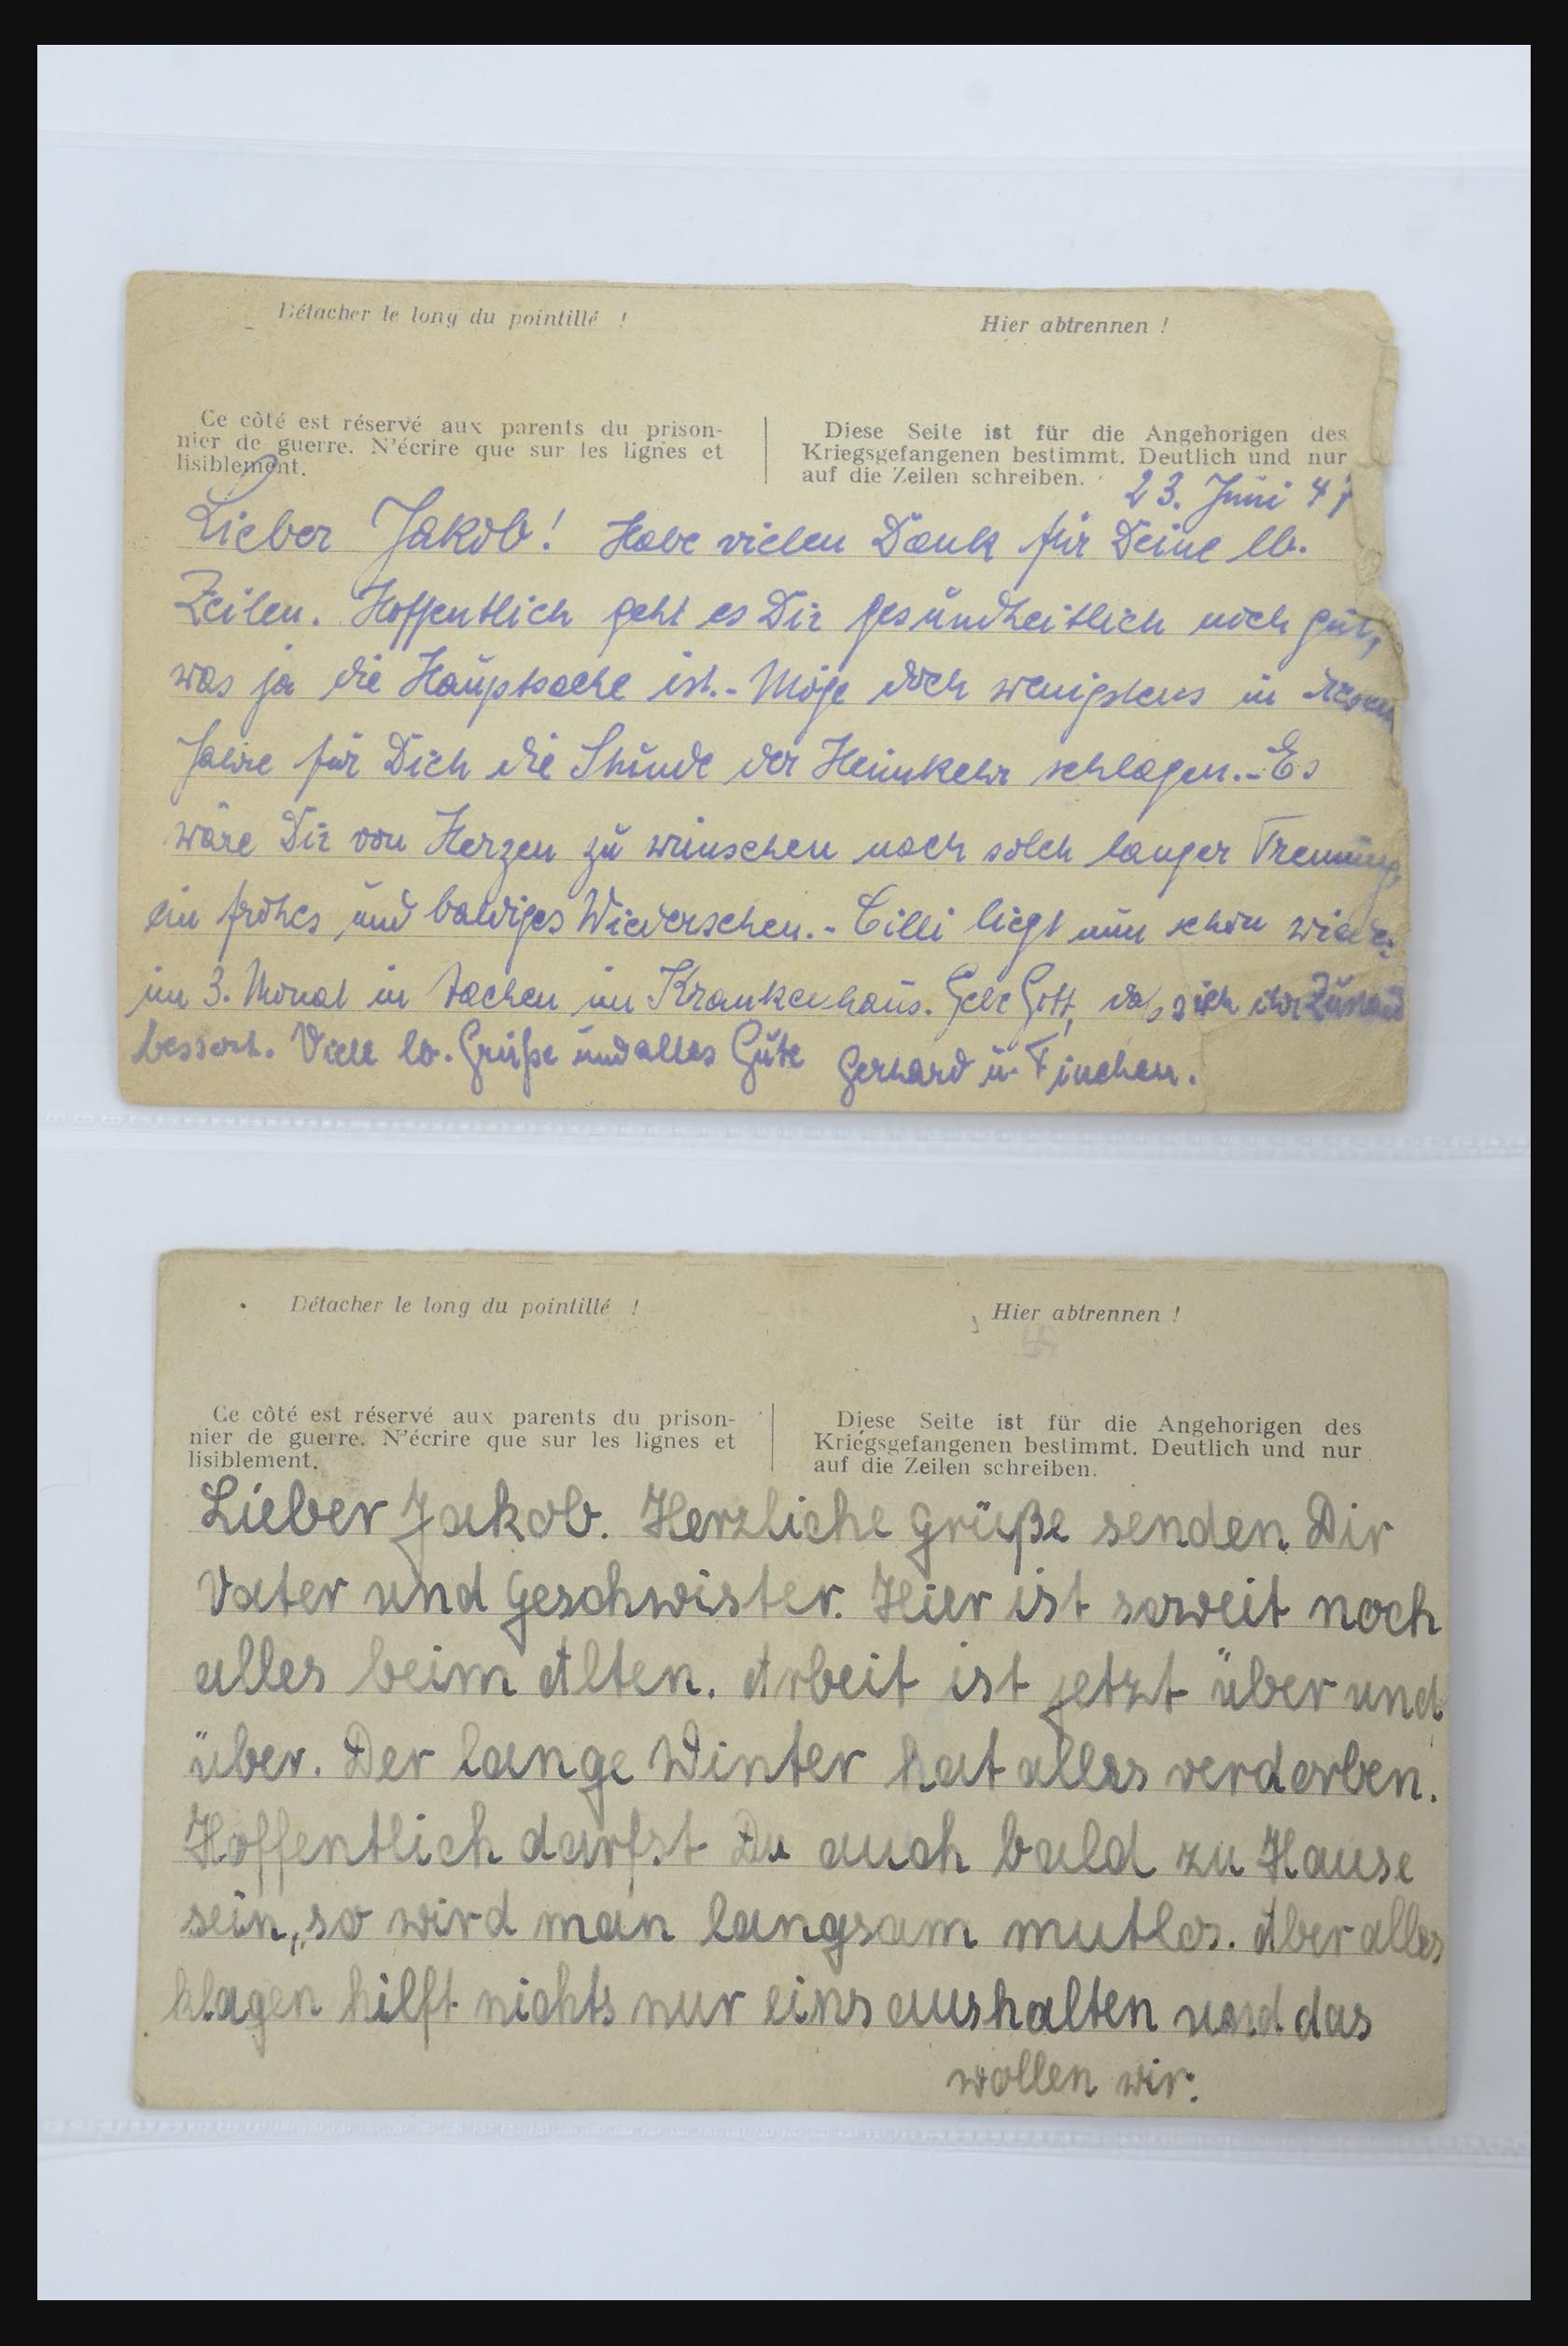 Détacher le long du pointillé !
Hier abtrennen !
Ce côté est réservé aux parents du prison-
nier de guerre. N'écrire que sur les lignes et
lisiblement.
Diese Seite ist für die Angehorigen des
Kriegsgefangenen bestimmt. Deutlich und nur
auf die Zeilen schreiben.
23. Juni 47
Lieber Jakob! Habe vielen Dank für Deine lb.
Zeilen. Hoffentlich geht es Dir gesundheitlich noch gut,
was ja die Hauptsache ist.- Möge doch wenigstens in diesem
Jahre für Dich die Stunde der Heimkehr schlagen.- Es
wäre Dir von Herzen zu wünschen nach solch langer Trennung,
ein frohes und baldiges Wiedersehen.- Cilli liegt nun schon wieder
im 3. Monat in Aachen im Krankenhaus. Gebe Gott, daß sich ihr Zustand
bessert. Viele lb. Grüße und alles Gute Gerhard u. Finchen.
Détacher le long du pointillé !
Hier abtrennen !
Ce côté est réservé aux parents du prison-
nier de guerre. N'écrire que sur les lignes et
lisiblement.
Diese Seite ist für die Angehorigen des
Kriegsgefangenen bestimmt. Deutlich und nur
auf die Zeilen schreiben.
Lieber Jakob. Herzliche Grüße senden Dir
Vater und Geschwister. Hier ist soweit noch
alles beim Alten. Arbeit ist jetzt über und
über. Der lange Winter hat alles verdorben.
Hoffentlich darfst Du auch bald zu Hause
sein, so wird man langsam mutlos. Aber alles
klagen hilft nichts nur eins aushalten und das
wollen wir.